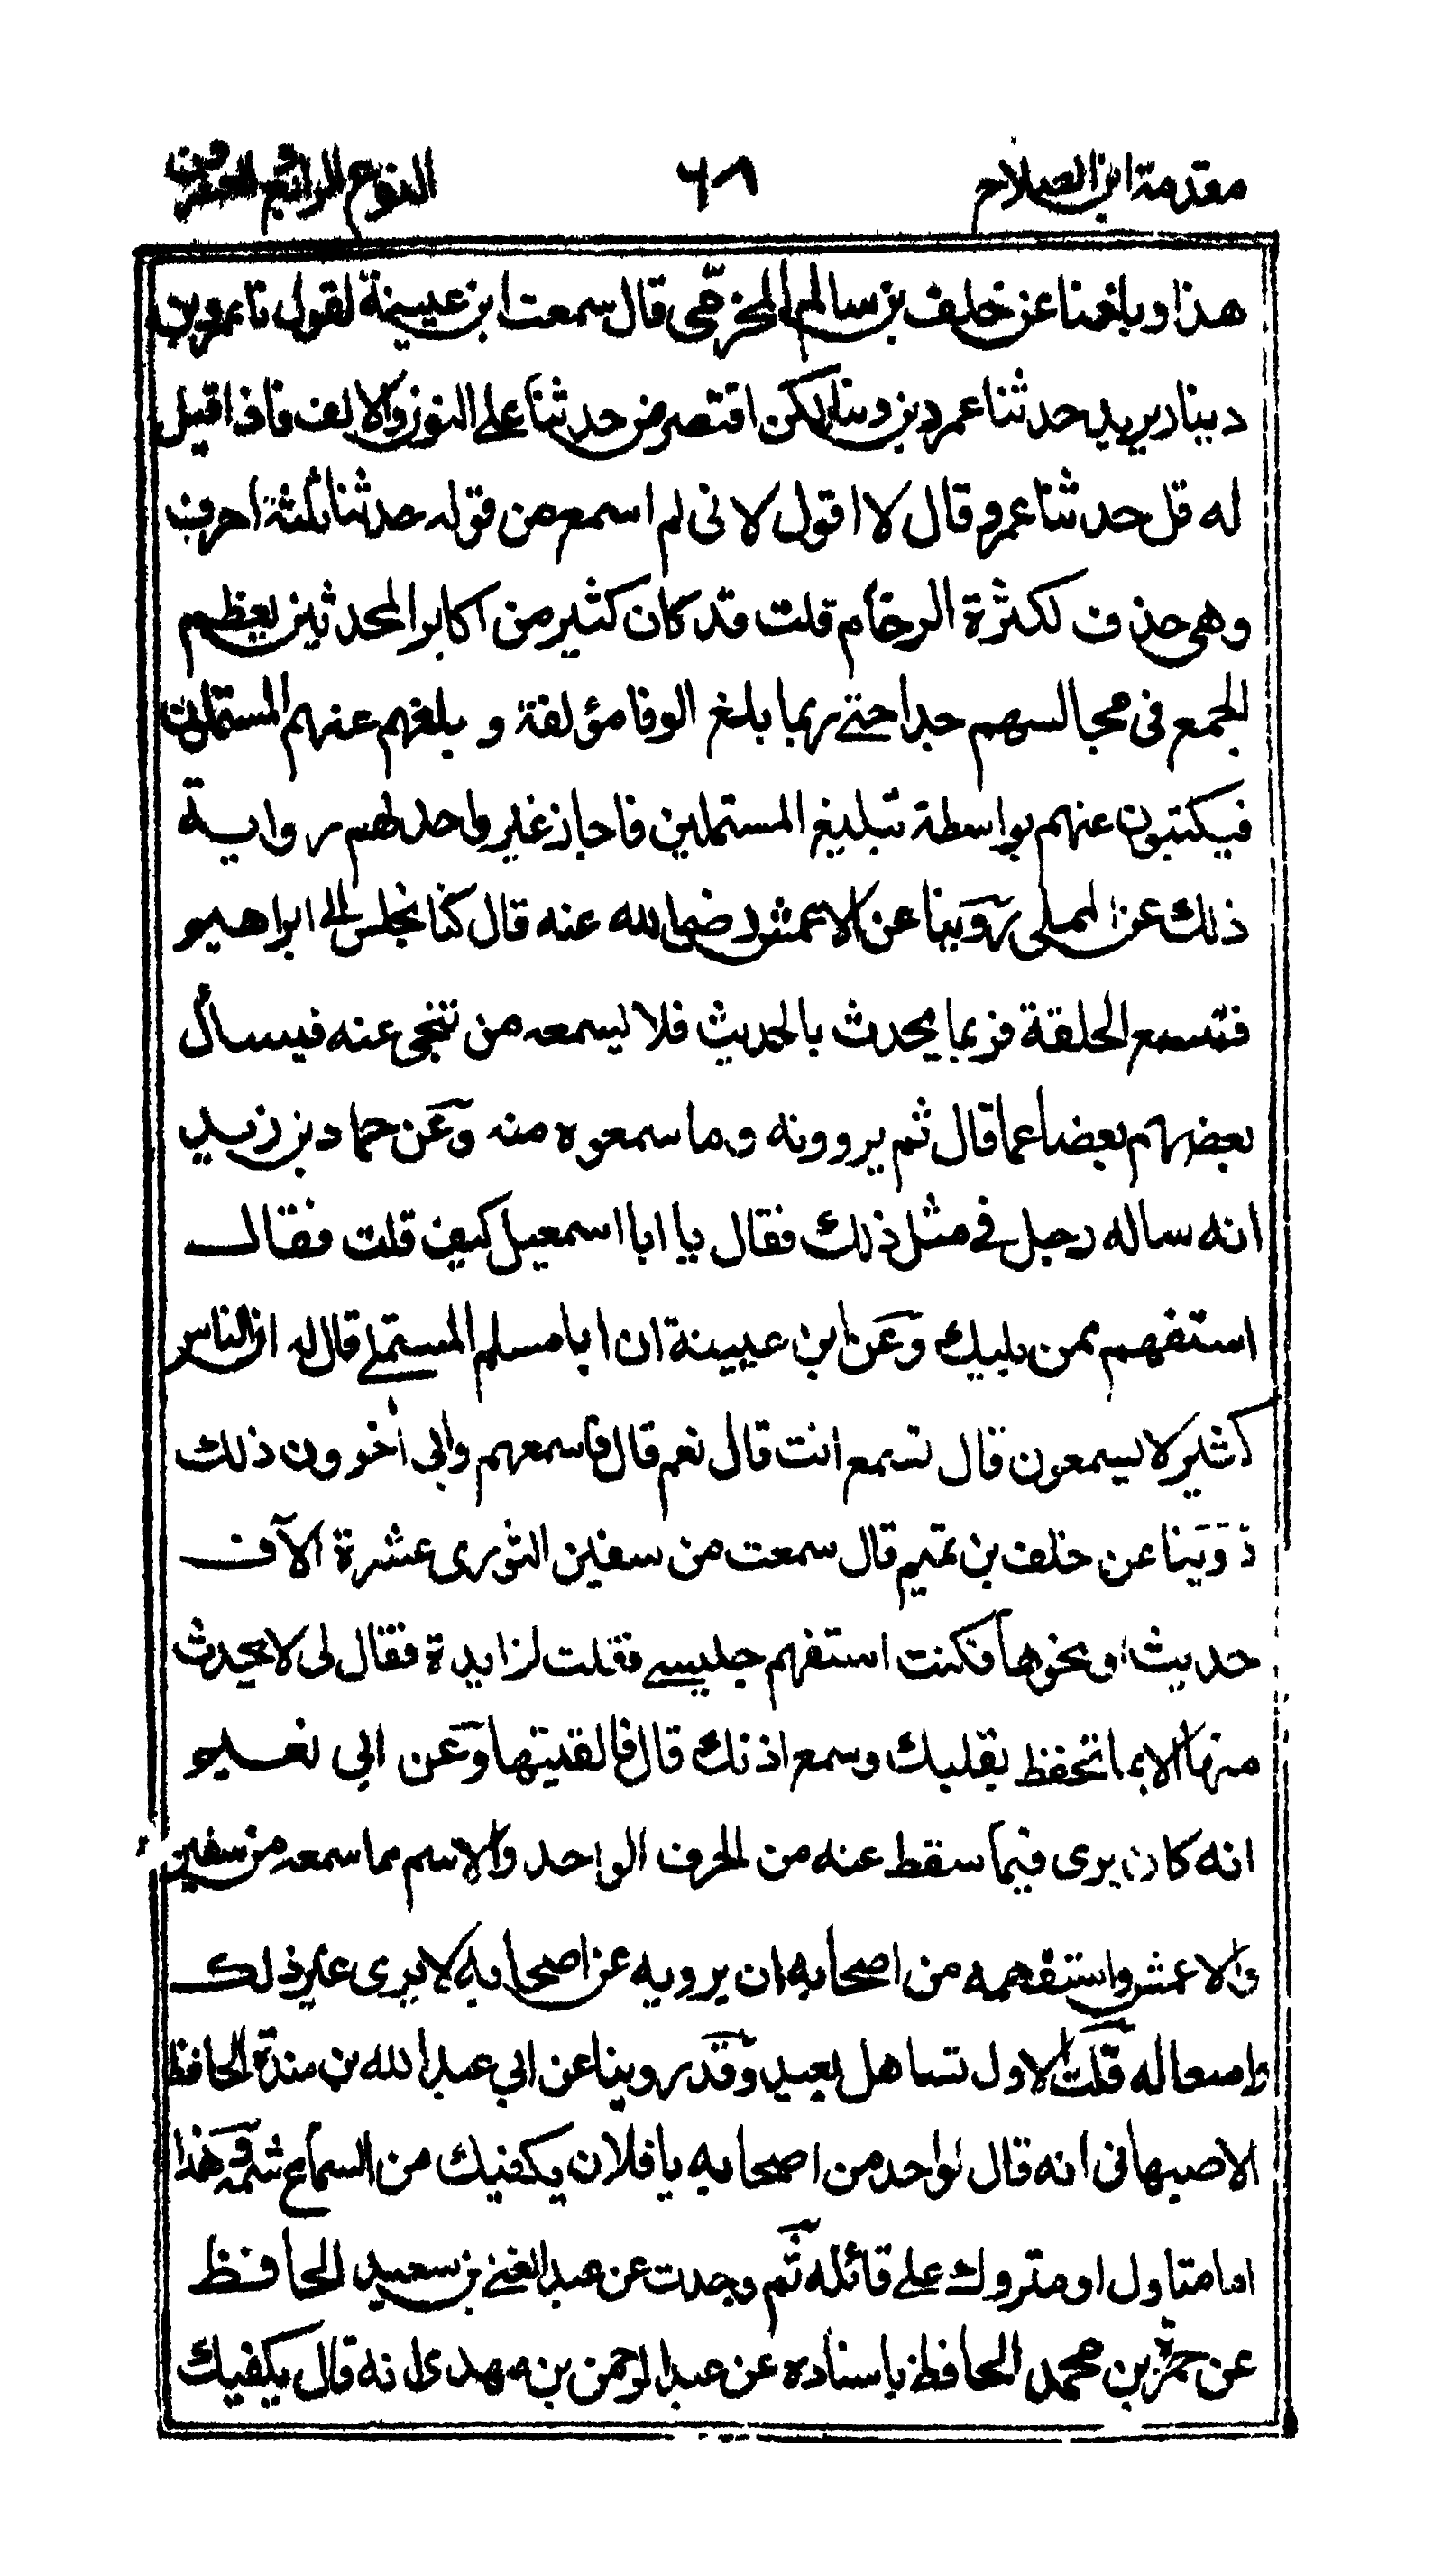 مقدمة ابن الصلاح ٦٨ النوع الرابع والعشرون
هذا وبلغنا عن خلف بن سالم المخرمى قال سمعت ابن عيينة يقول نا عمرو بن
دينار يريد حدثنا عمرو بن دينار لكن اقتصر من حدثنا على النون والالف فاذا قيل
له قل حدثنا عمرو قال لا اقول لانى لم اسمع من قوله حدثنا ثلثة احرف
وهى حذف لكثرة الزحام قلت قد كان كثير من اكابر المحدثين يعظم
الجمع فى مجالسهم جدا حتى ربما بلغ الوفا مؤلفة و يبلغهم عنهم المستملون
فيكتبون عنهم بواسطة تبليغ المستملين فاجاز غير واحد لهم رواية
ذلك عن المملى روينا عن الاعمش رضى الله عنه قال كنا نجلس الى ابراهيم
فتتسع الحلقة فربما يحدث بالحديث فلا يسمعه من تنحى عنه فيسأل
بعضهم بعضا عما قال ثم يروونه وما سمعوه منه وعن حماد بن زيد
انه ساله رجل فى مثل ذلك فقال يا ابا اسمعيل كيف قلت فقال
استفهم ممن يليك وعن ابن عيينة ان ابا مسلم المستملى قال له ان الناس
كثير لا يسمعون قال تسمع انت قال نعم قال فاسمعهم وابى أخرون ذلك
روينا عن خلف بن تميم قال سمعت من سفين الثورى عشرة الآف
حديث او نحوها فكنت استفهم جليسى فقلت لزايدة فقال لى لا تحدث
منها الا بما تحفظ بقلبك وسمع اذنك قال فالقيتها وعن ابى نعيم
انه كان يرى فيما سقط عنه من الحرف الواحد والاسم مما سمعه من سفين
والاعمش واستفهمه من اصحابه ان يرويه عن اصحابه لا يرى غير ذلك
واسعا له قلت الاول تساهل بعيد وقد روينا عن ابى عبد الله بن مندة الحافظ
الاصبهانى انه قال لواحد من اصحابه يا فلان يكفيك من السماع شمه وهذا
اما متاول او متروك على قائله ثم وجدت عن عبد الغنى بن سعيد الحافظ
عن حمزة بن محمد الحافظ باسناده عن عبد الرحمن بن مهدى انه قال يكفيك